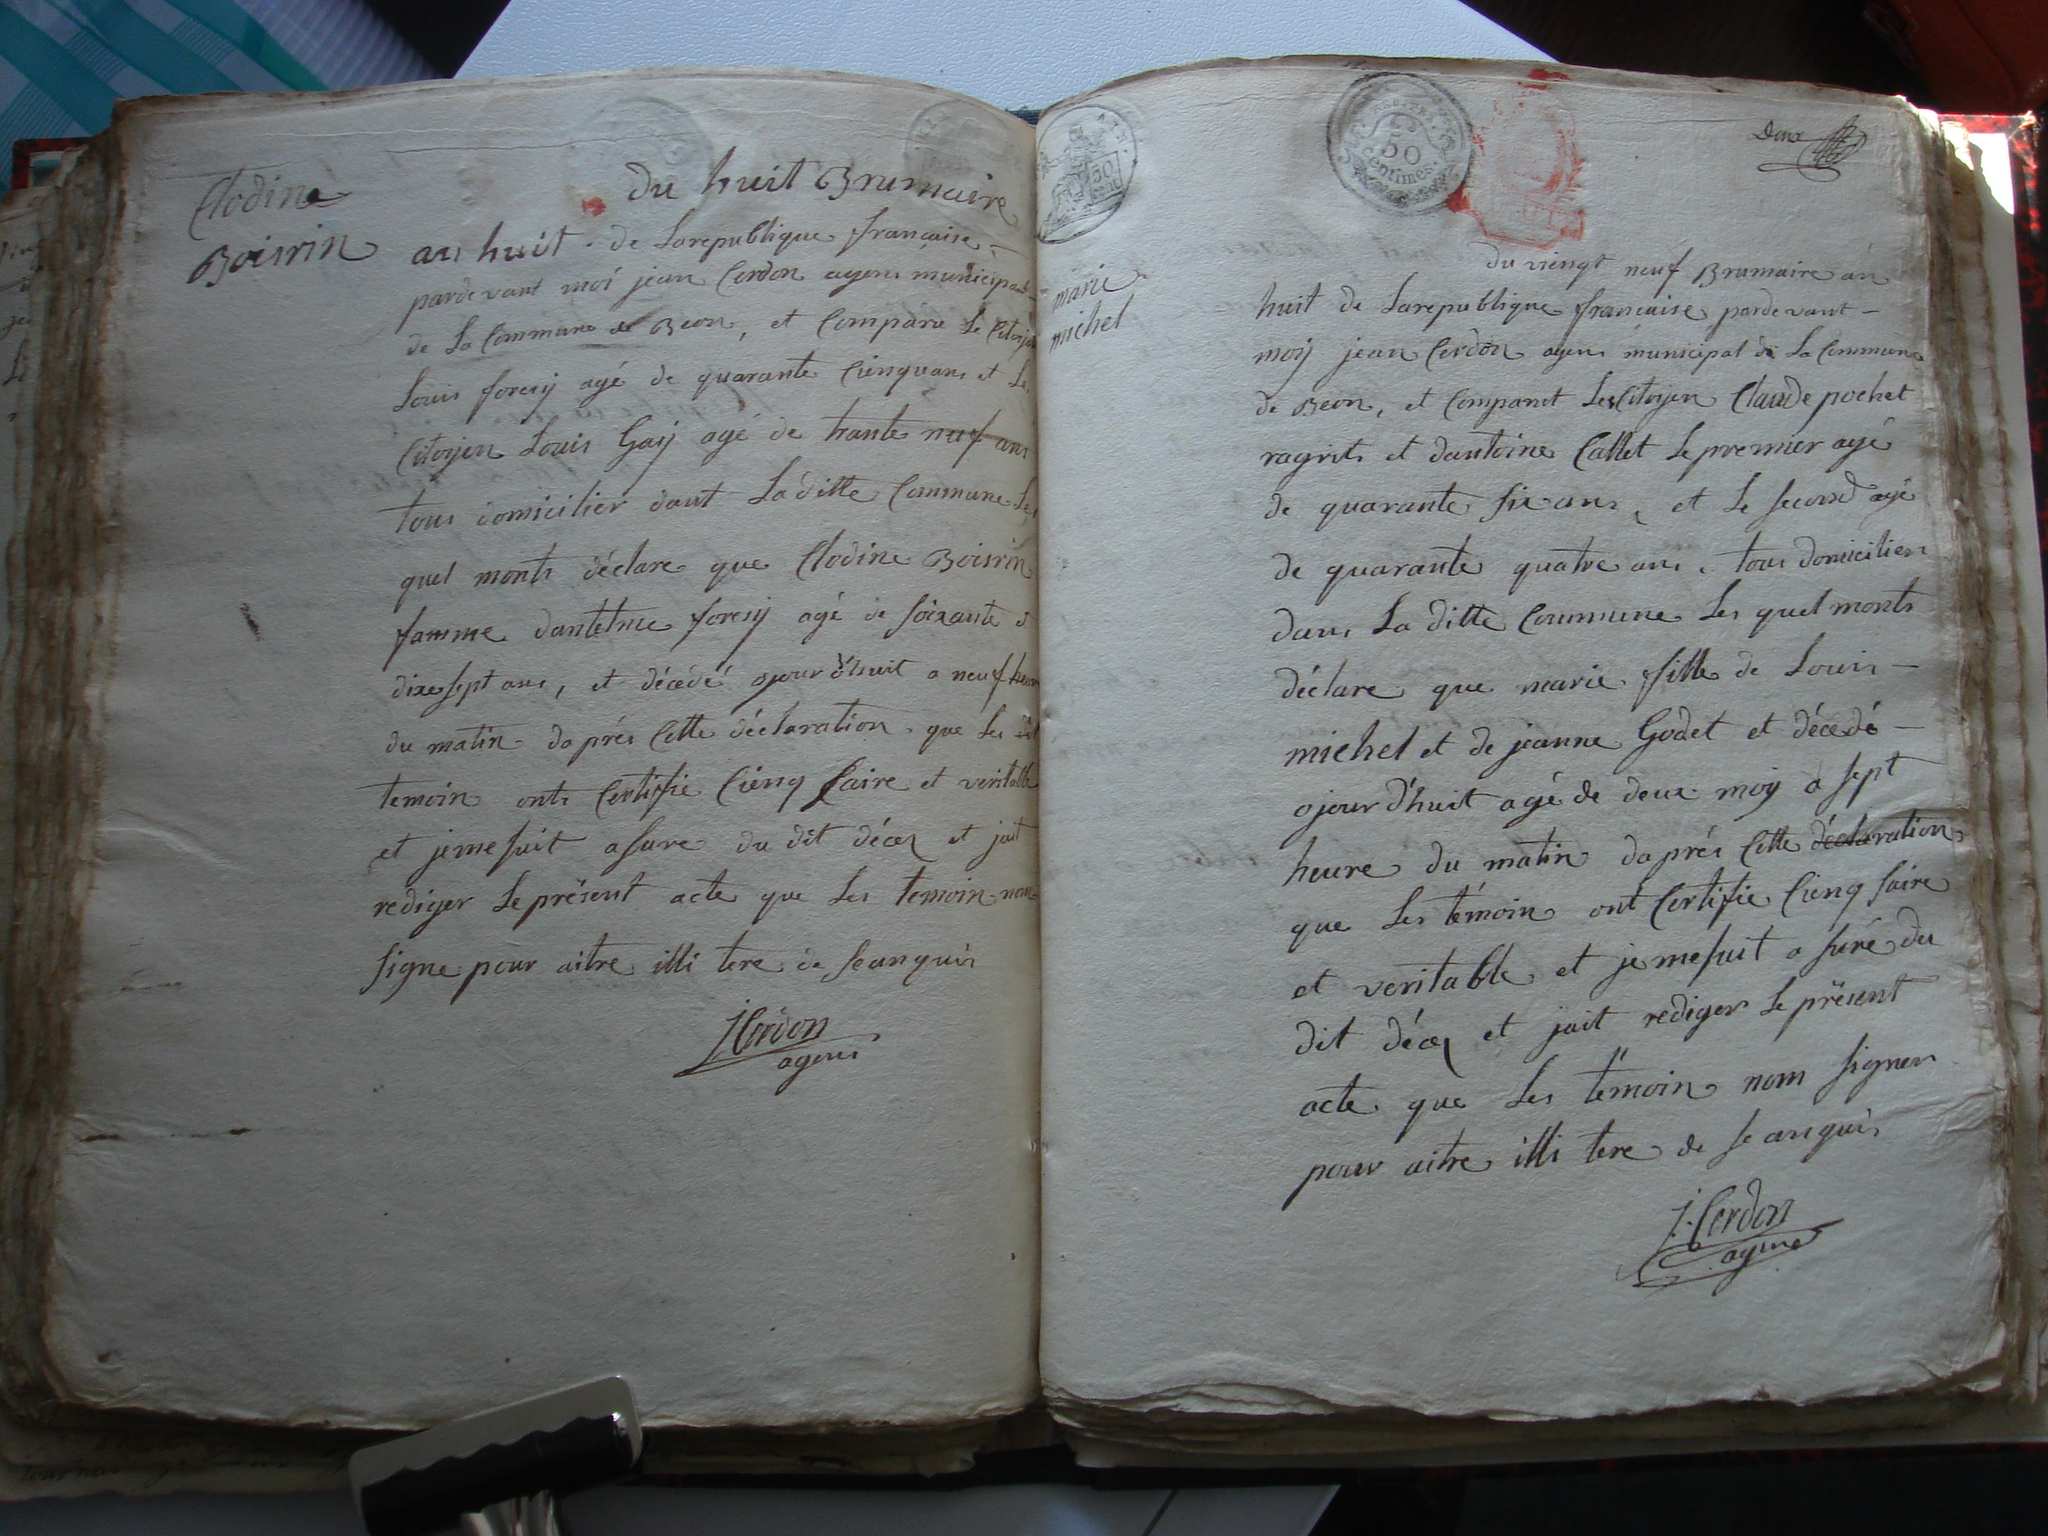 Clodine
Boisrin
du huit Brumaire
an huit de Larepublique française
pardevant moi jean Cerdon agens municipal
de La Commune de Beon, et Comparu Le Citoyen
Louis foresy agé de quarante Cienquans et Le
Citoyen Louis Gay agé de trante neuf ans
tous domicilier dant La ditte Commune Les
quel monts déclare que Clodine Boisrin
famme dantelme foresy agé de soixante
dixe sept ans, et décédé ojour d'huit a neuf heure
du matin daprés Cette déclaration que Les dit
temoin onts Certifie Cienq faire et veritable
et jemesuit asure du dit décez et jait
rediger Le présent acte que Les temoin non
signe pour aitre illi tere de seanquis
J Cerdon
agens
50
Centimes
Deux
marie
michel
du viengt neuf Brumaire an
huit de Larepublique française pardevant
moy jean Cerdon agens municipal de La Commune
de Beon, et Comparut Les Citoyen Claude pochet
ragrits et dantoine Callet Le premier agé
de quarante six ans, et Le second agé
de quarante quatre ans, tous domicilier
dans La ditte Commune Les quel monts
déclare que marie fille de Louis
michel et de jeanne Godet et décedé
ojour d'huit agé de deux moy a sept
heure du matin daprés Cette déclaration
que Les témoin ont Certifie Cienq faire
et veritable et jemesuit asuré du
dit décez et jait rediger Le présent
acte que Les témoin nom signer
pour aitre illi tere de seanquis
J. Cerdon
agens